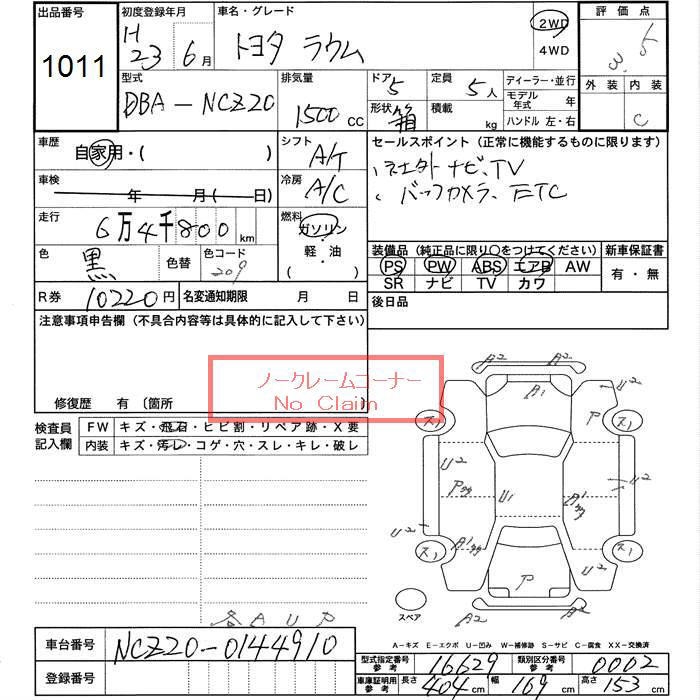 出品番号 初度登録年月 車名・グレード 2WD 評価点
1011 H 23 6月 トヨタ ラウム 4WD 3.5
型式 排気量 ドア 5 定員 5人 ディーラー・並行 外装 内装
DBA-NCZ20 1500cc 形状 箱 積載 kg モデル年式 年 C
ハンドル 左・右
車歴 シフト セールスポイント(正常に機能するものに限ります)
自家用・( ) A/T 社外ナビ、TV
車検 冷房 バックカメラ、ETC
年 月(日) A/C
走行 燃料
6万4千800km ガソリン・軽・油
色 黒 色替 色コード 209 ( )
装備品(純正品に限り○をつけてください) 新車保証書
PS PW ABS エアB AW 有・無
SR ナビ TV カワ
R券 10220円 名変通知期限 月 日 後日品
注意事項申告欄(不具合内容等は具体的に記入して下さい)
ノークレームコーナー
No Claim
修復歴 有〔箇所 〕
検査員記入欄 FW キズ・飛石・ヒビ割・リペア跡・X要
内装 キズ・汚レ・コゲ・穴・スレ・キレ・破レ
A2 A2
A1 U2
ス1 P ス1
U2 U2
P U1 A1
U2 A1 U2
ス1 ス1
P
A2 A2
スペア
各 A U P
A-キズ E-エクボ U-凹み W-補修跡 S-サビ C-腐食 XX-交換済
車台番号 NCZ20-0144910
型式指定番号 参考 16629 類別区分番号 参考 0002
登録番号
車庫証明用 参考 長さ 404cm 幅 169cm 高さ 153cm